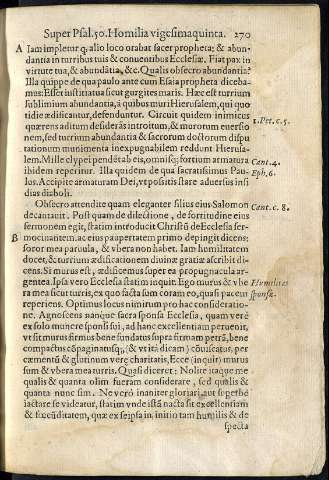 Super Psal.50. Homilia vigesimaquinta. 270
A Iam impletur q, alio loco orabat sacer propheta; & abun-
dantia in turribus tuis & conuentibus Ecclesiæ. Fiat pax in
virtute tua, & abundātia, &c. Qualis obsecro abundantia?
Illa quippe de qua paulo ante cum Esaia propheta diceba-
mus: Esset iustitia tua sicut gurgites maris. Hæc est turrium
sublimium abundantia, à quibus muri Hierusalem, qui quo
tidie ædificantur, defenduntur. Circuit quidem inimicus
quærens aditum desiderās introitum, & murorum euersio
nem, sed turrium abundantia & sacrorum doctorum dispu
tationum munimenta inexpugnabilem reddunt Hierusa-
lem. Mille clypei pendēt ab eis, omnisq; fortium armatura
ibidem reperitur. Illa quidem de qua sacratissimus Pau-
lus. Accipite armaturam Dei, vt positis stare aduersus insi
dias diaboli.
1. Pet. c. 5.
Cant. 4.
Eph. 6.
Obsecro attendite quam eleganter filius eius Salomon
decantauit. Post quam de dilectione, de fortitudine eius
sermonem egit, statim introducit Christū de Ecclesia ser-
B mocinantem. ac eius paupertatem primo depingit dicens;
soror mea paruula, & vbera non habet. Iam humilitatem
docet, & turrium ædificationem diuinæ gratiæ ascribit di-
cens. Si murus est, ædificemus super ea propugnacula ar-
gentea. Ipsa vero Ecclesia statim inquit. Ego murus & vbe
ra mea sicut turris, ex quo facta sum coram eo, quasi pacem
reperiens. Optimus locus nimirum pro hac consideratio-
ne. Agnoscens nanque sacra sponsa Ecclesia, quam verè
ex solo munere sponsi sui, ad hanc excellentiam peruenit,
vt sit murus firmus bene fundatus supra firmam petrā, bene
compactus cōpaginatusq; (& vt ita dicam) cōuiscatus, per
cæmentū & glutinum veræ charitatis, Ecce (inquit) murus
sum & vbera mea turris. Quasi diceret: Nolite itaque me
qualis & quanta olim fueram considerare, sed qualis &
quanta nunc sim. Ne verò inaniter gloriari, aut superbè
iactare se videatur, statim vnde istā nacta sit excellentiam
& fœcūditatem, quæ ex seipsa in initio tam humilis & de
specta
Cant. c. 8.
Humilitas
sponsæ.